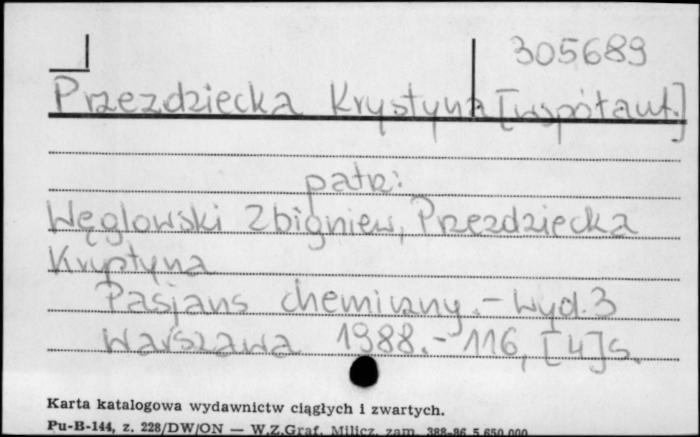 305689
Przezdziecka Krystyna [współaut.]
patrz:
Węglowski Zbigniew, Przezdziecka
Krystyna
Pasjans chemiczny. - Wyd. 3
Warszawa 1988. - 116, [4] s.
Karta katalogowa wydawnictw ciągłych i zwartych.
Pu-B-144, z. 228/DW/ON — W.Z.Graf. Milicz, zam. 388-86 5.650.000